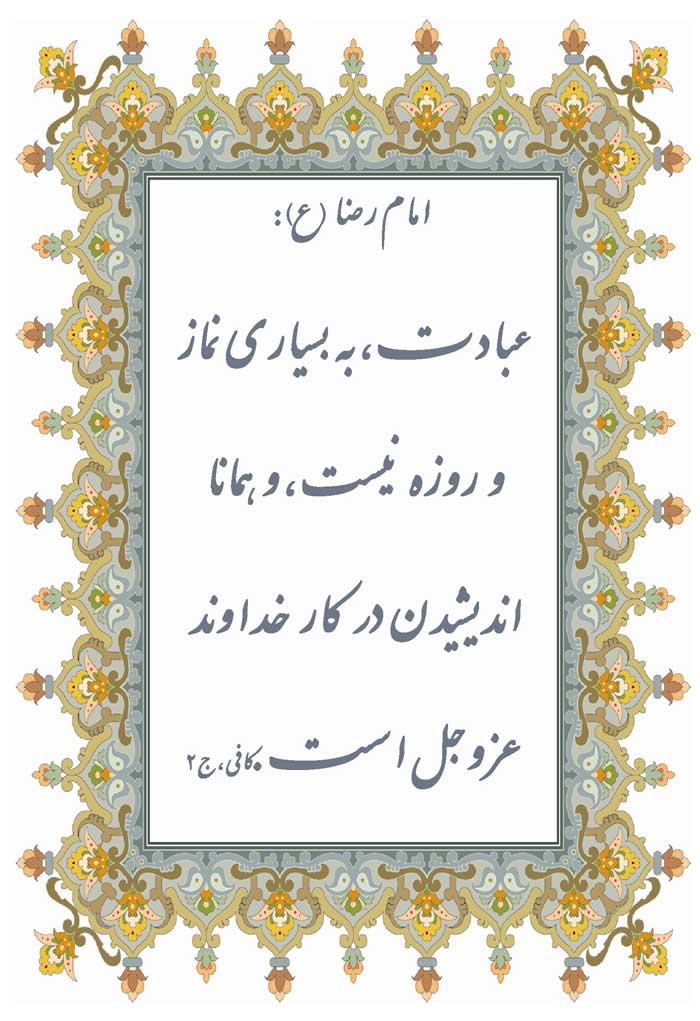 امام رضا (ع):
عبادت، به بسیاری نماز
و روزه نیست، و همانا
اندیشیدن در کار خداوند
عزوجل است. کافی، ج۲